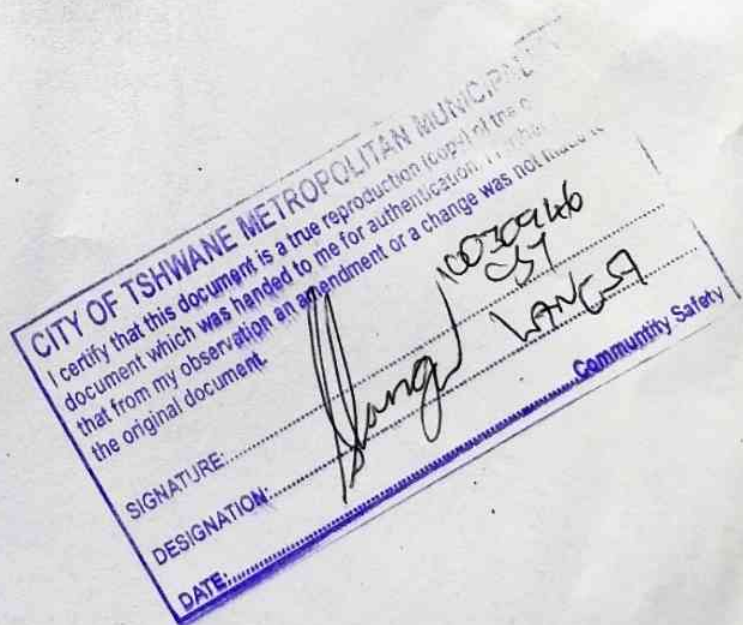 CITY OF TSHWANE METROPOLITAN
I certify that this document is a true reproduction (copy) of the
document which was handed to me for authentication.
that from my observation an amendment or a change was not made
the original document.
SIGNATURE:
DESIGNATION:
LANGA
DATE:
Community Safety